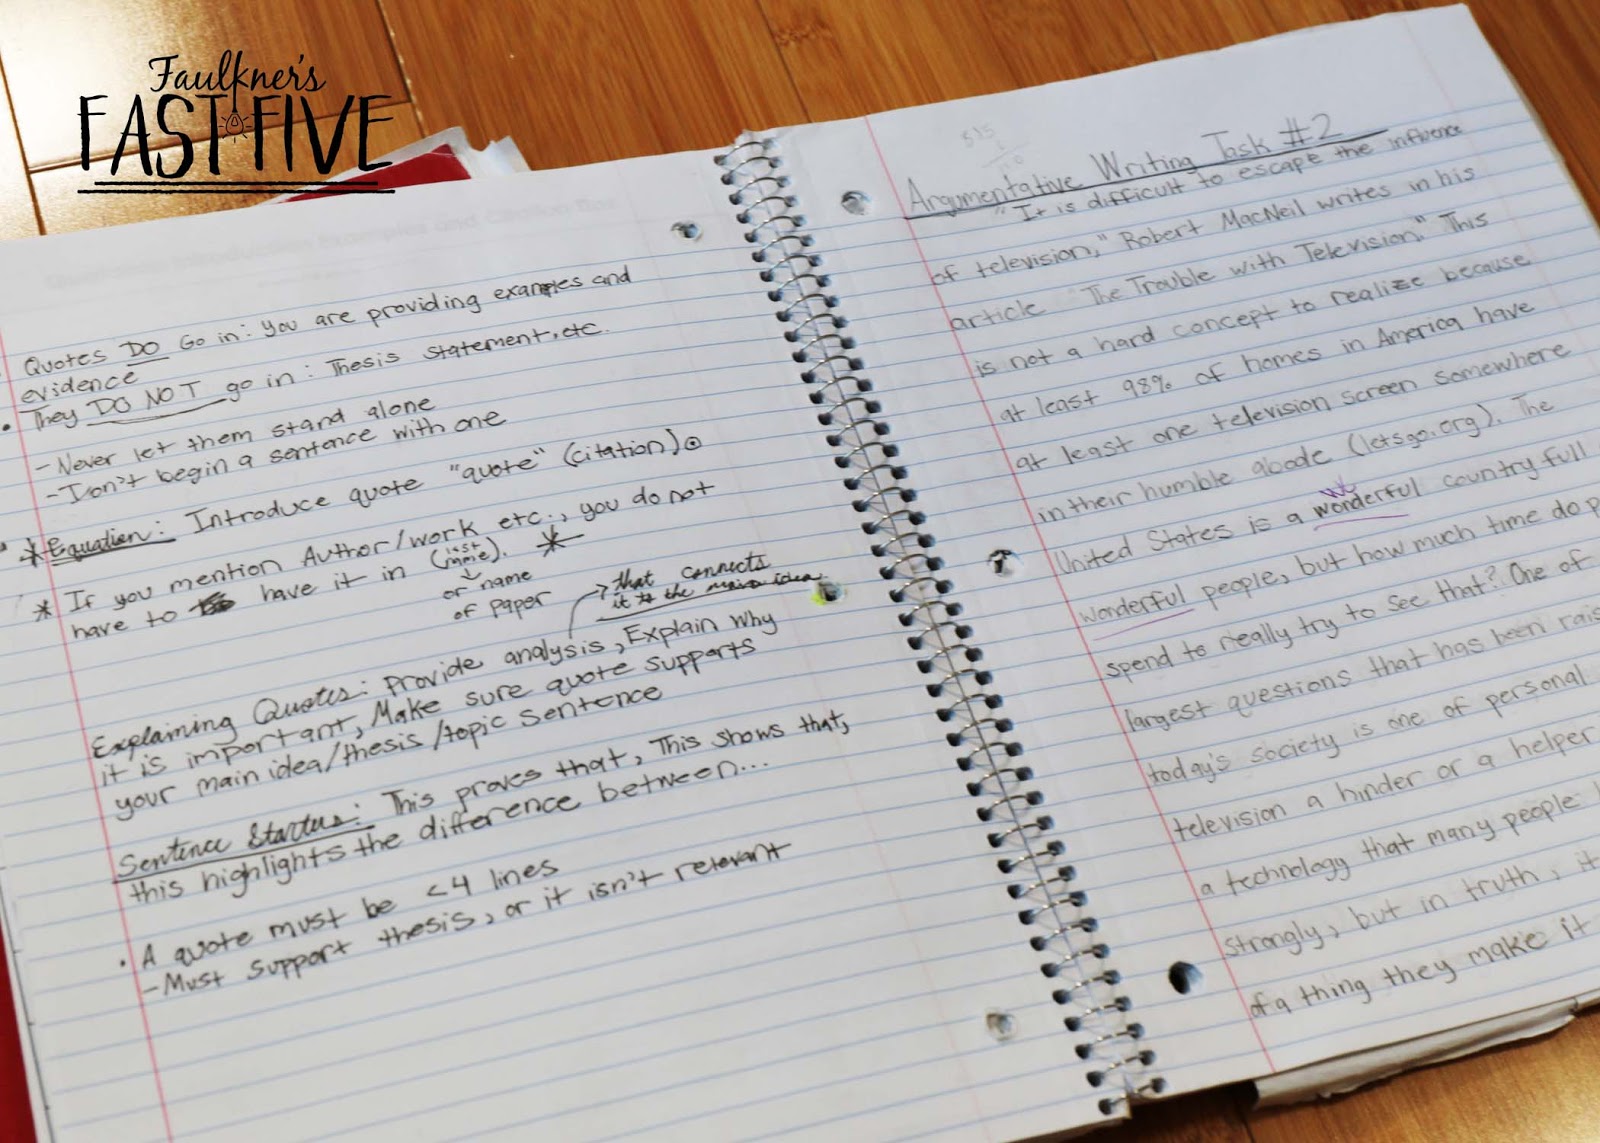 Faulkner's
FAST FIVE
Quotes DO Go in: You are providing examples and
evidence
• They DO NOT go in: Thesis statement, etc.
-Never let them stand alone
-Don't begin a sentence with one
* Equation: Introduce quote "quote" (citation).
* If you mention Author/work etc., you do not
have to have it in (last name). *
or name
of paper
that connects
it to the main idea
Explaining Quotes: provide analysis, Explain why
it is important, Make sure quote supports
your main idea/thesis/topic sentence
Sentence Starters: This proves that, This shows that,
this highlights the difference between...
• A quote must be <4 lines
-Must support thesis, or it isn't relevant
Argumentative Writing Task #2
"It is difficult to escape the influence
of television," Robert MacNeil writes in his
article "The Trouble with Television." This
is not a hard concept to realize because
at least 98% of homes in America have
at least one television screen somewhere
in their humble abode (letsgo.org). The
United States is a wonderful country full
wonderful people, but how much time do p
spend to really try to see that? One of
largest questions that has been rais
today's society is one of personal
television a hinder or a helper
a technology that many people
strongly, but in truth, it
of a thing they make it